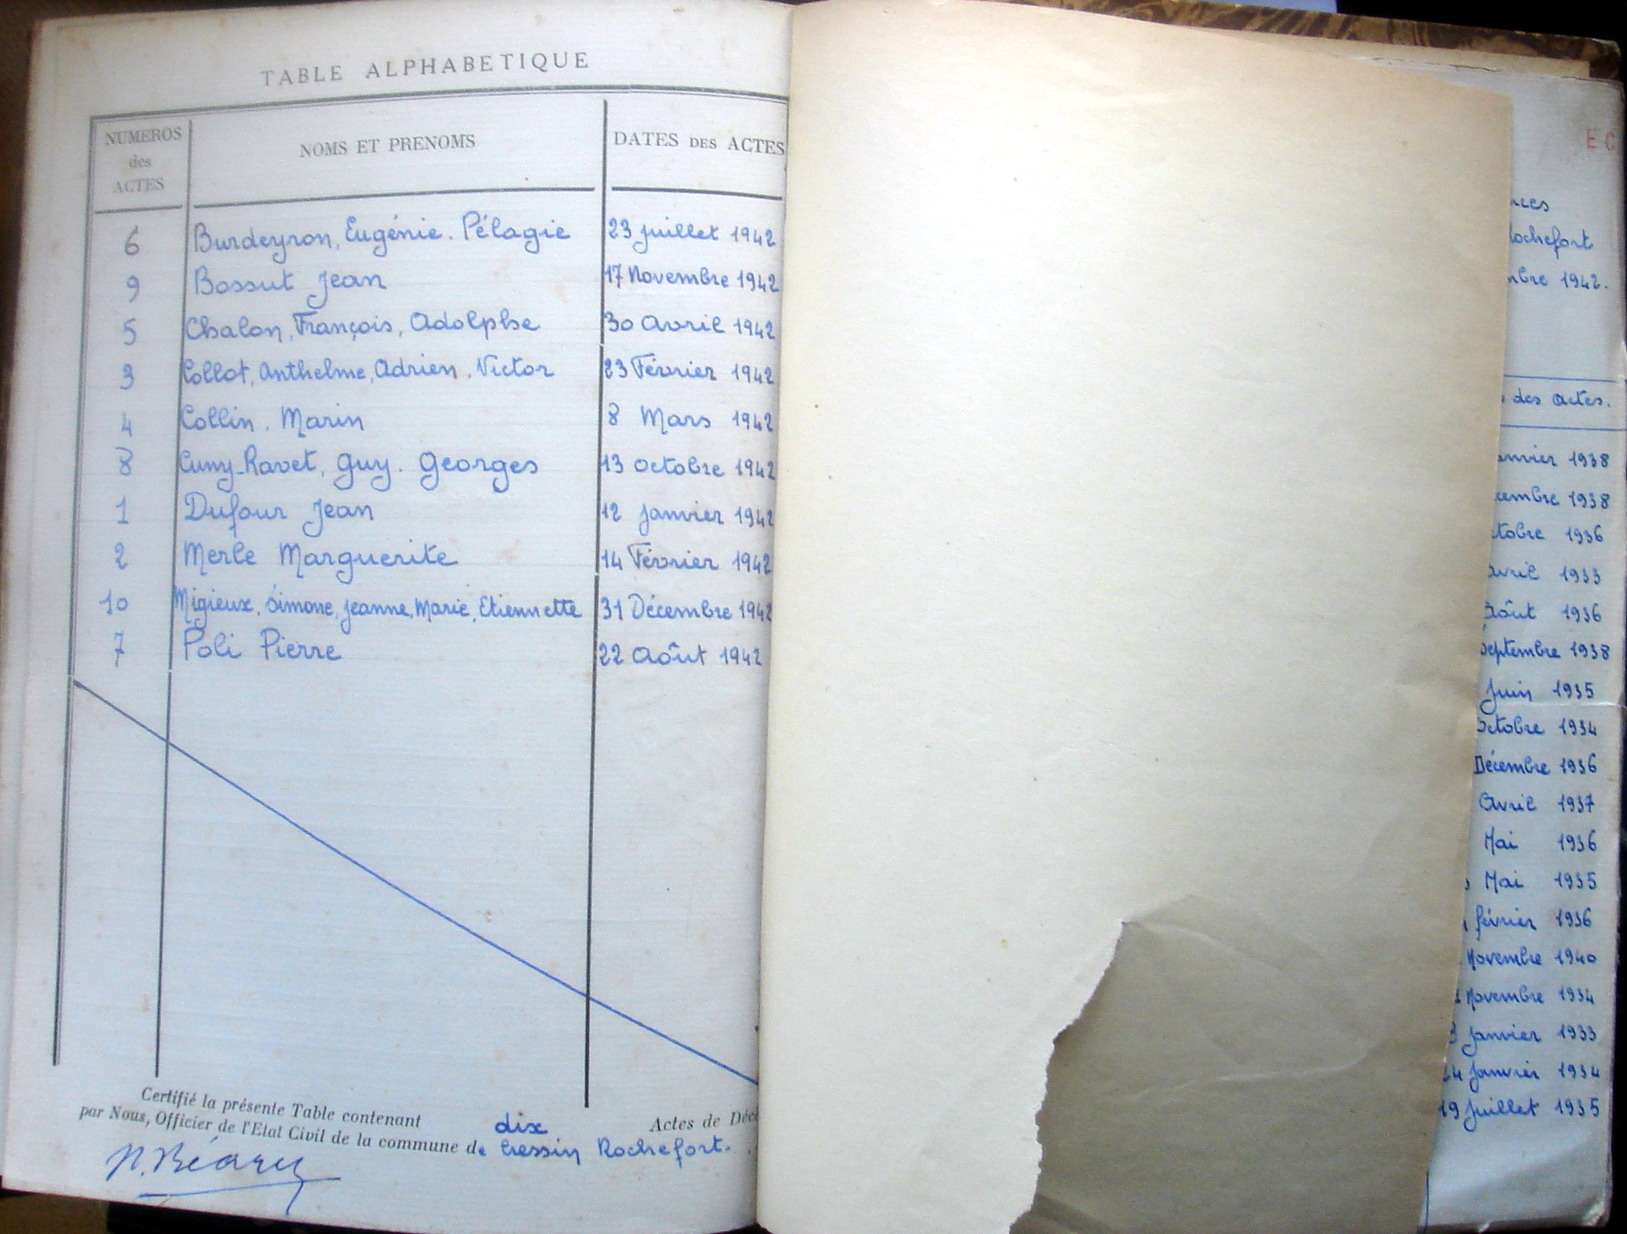 TABLE ALPHABETIQUE
NUMEROS des ACTES
NOMS ET PRENOMS
DATES DES ACTES
6 Burdeyron, Eugénie. Pélagie 23 juillet 1942
9 Bossut Jean 17 Novembre 1942
5 Chalon, François, Adolphe 30 Avril 1942
3 Collot, Anthelme, Adrien, Victor 23 Février 1942
4 Collin. Marin 8 Mars 1942
8 Cuny-Ravet, Guy. Georges 13 octobre 1942
1 Dufour Jean 12 Janvier 1942
2 Merle Marguerite 14 Février 1942
10 Migieux, Simone, Jeanne, Marie, Etiennette 31 Décembre 1942
7 Poli Pierre 22 Août 1942
Certifié la présente Table contenant dix Actes de Déc
par Nous, Officier de l'Etat Civil de la commune de Cressin Rochefort.
EC
nces
Rochefort
mbre 1942.
des actes.
anvier 1938
cembre 1938
ctobre 1936
avril 1933
Août 1936
Septembre 1938
Juin 1935
octobre 1934
Décembre 1936
Avril 1937
Mai 1936
Mai 1935
février 1936
Novembre 1940
Novembre 1934
3 Janvier 1933
24 Janvier 1934
19 Juillet 1935